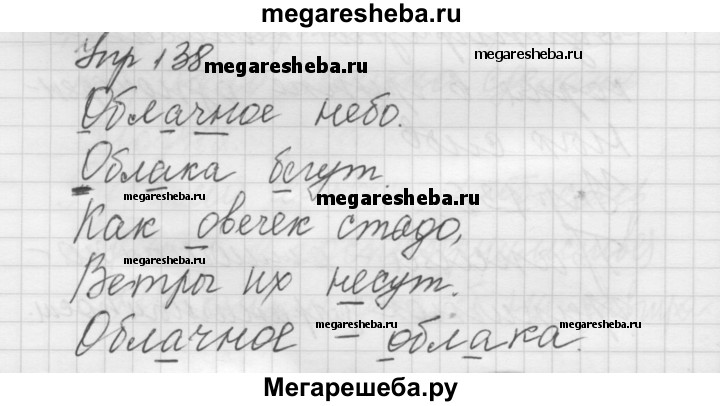 megaresheba.ru
Упр 138
megaresheba.ru
megaresheba.ru
Облачное небо.
Облака бегут.
megaresheba.ru
megaresheba.ru
megaresheba.ru
Как овечек стадо,
Ветры их несут.
Облачное – облака.
megaresheba.ru
megaresheba.ru
Мегарешеба.ру